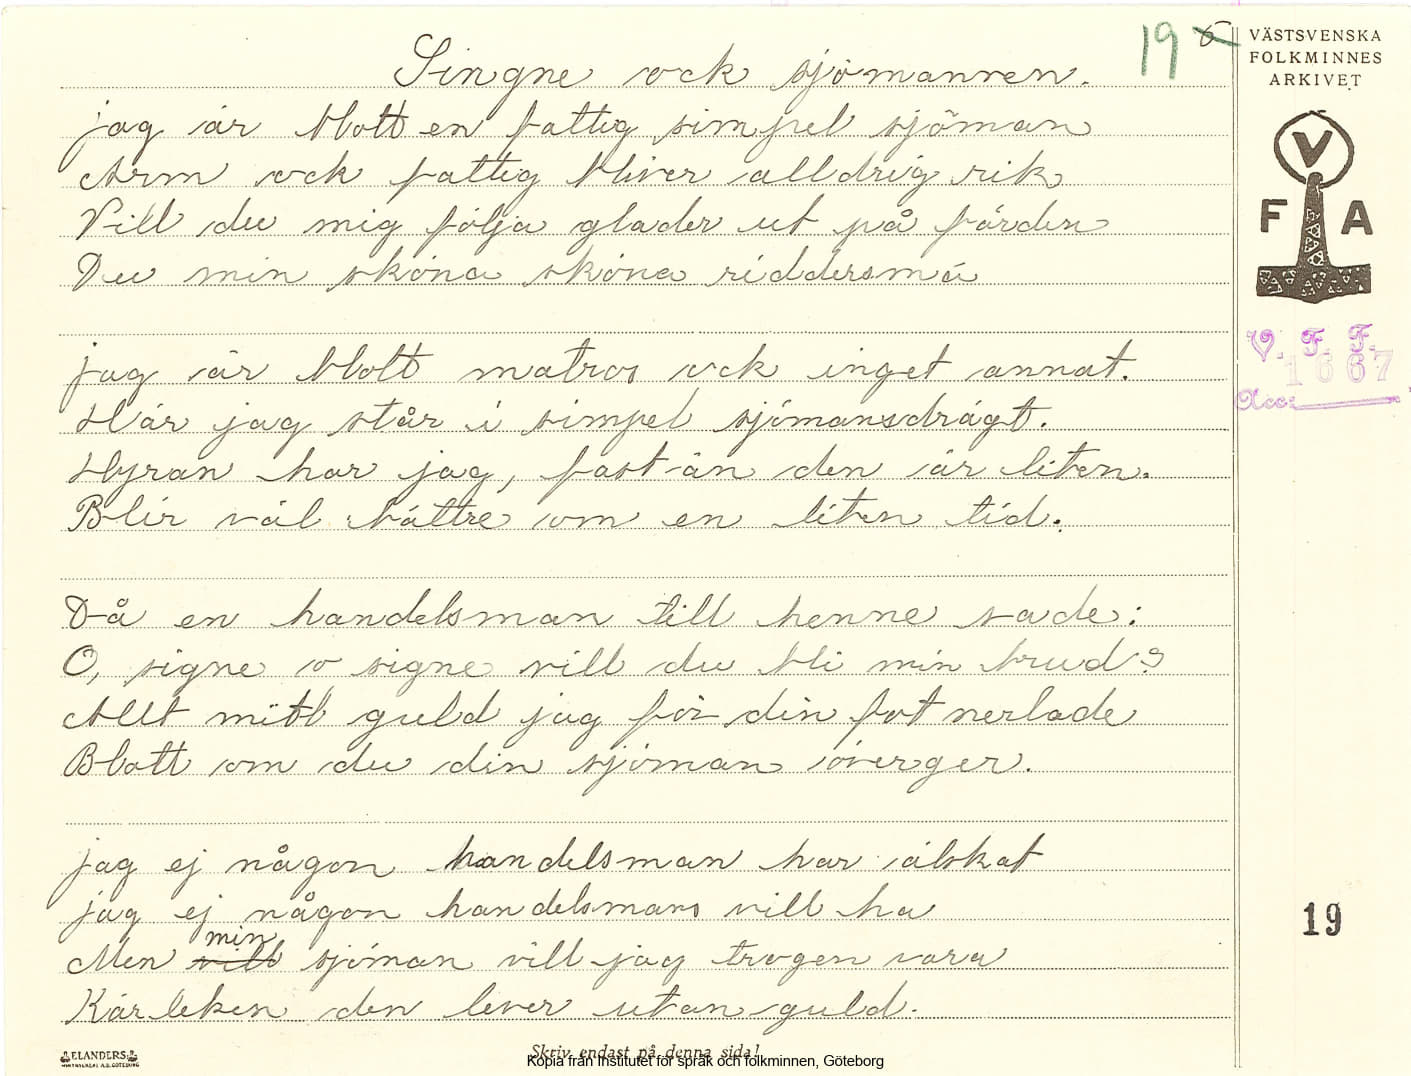 Singne ock sjömannen.
19 6
VÄSTSVENSKA
FOLKMINNES
ARKIVET
jag är blott en fattig simpel sjöman
Arm ock fattig bliver alldrig rik
Vill du mig följa glader ut på färden
Du min sköna sköna riddersmö
V
F A
V. F. F.
1667
Acc:
jag är blott matros ock inget annat.
Här jag står i simpel sjömansdrägt.
Hyran har jag, fast än den är liten.
Blir väl bättre om en liten tid.
Då en handelsman till henne sade:
O, signe o signe vill du bli min brud?
Allt mitt guld jag för din fot nerlade
Blott om du din sjöman överger.
jag ej någon handelsman har älskat
jag ej någon handelsman vill ha
Men vill min sjöman vill jag trogen vara
Kärleken den lever utan guld.
19
ELANDERS
Skriv endast på denna sida!
Kopia från Institutet för språk och folkminnen, Göteborg